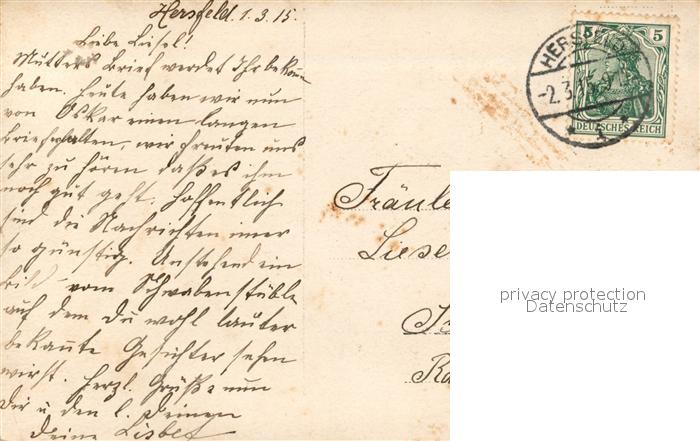 Hersfeld. 1.3.15.
Liebe Liesel!
Mutters Brief werdet Ihr bekommen
haben. Heute haben wir nun
von Oskar einen langen
Brief erhalten, wir freuten uns
sehr zu hören daß es ihm
noch gut geht. Hoffentlich
sind die Nachrichten imer
so günstig. Umstehend ein
Bild vom Schwabenstüble
auf dem Du wohl lauter
bekannte Gesichter sehen
wirst. Herzl. Grüße nun
Dir u. den l. Deinen
Deine Lisbet
HERSFELD
-2.3.
5
DEUTSCHES REICH
Fräule
Liese
privacy protection
Datenschutz